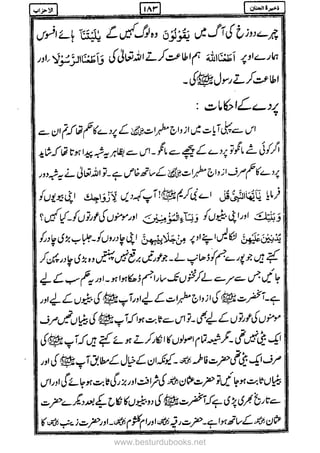 ذخیرۃ الجنان
۱۸۳
الاحزاب
چہرے دوزخ کی آگ میں یَقُوْلُوْنَ وہ لوگ کہیں گے یٰلَیْتَنَآ ہائے افسوس
ہمارے اوپر اَطَعْنَا اللّٰهَ ہم اطاعت کرتے اللہ تعالیٰ کی وَاَطَعْنَا الرَّسُوْلَا اور
اطاعت کرتے رسول ﷺ کی۔
پردے کے احکامات :
اس سے پہلی آیات میں ازواج مطہرات کے پردے کا حکم تھا کہ تم ان سے
اگر کوئی شے مانگو تو پردے کے پیچھے سے مانگو۔ اس سے بظاہر یہ شبہ پیدا ہوتا تھا کہ شاید
پردے کا حکم صرف ازواج مطہرات کے ساتھ خاص ہے۔ تو اللہ تعالیٰ نے یہ شبہ دور
فرمایا یٰٓاَیُّهَا النَّبِیُّ قُلْ اے نبی کریم! آپ کہہ دیں لِّاَزْوَاجِكَ اپنی بیویوں کو
وَبَنٰتِكَ اور اپنی بیٹیوں کو وَنِسَآءِ الْمُؤْمِنِیْنَ اور مومنوں کی عورتوں کو۔ کیا کہیں؟
یُدْنِیْنَ عَلَیْهِنَّ لٹکا لیں اپنے اوپر مِنْ جَلَابِیْبِهِنَّ اپنی چادروں کو۔ جلباب بڑی چادر کو
کہتے ہیں جو پورے جسم کو ڈھانپ لے۔ جو عورتیں برقع نہیں پہنتیں وہ بڑی چادر پہن کر
جائیں جس سے سر سے لے کر ٹخنوں تک سارا جسم ڈھکا ہوا ہو۔ اور یہ حکم سب کے لیے
ہے۔ آنحضرت ﷺ کی ازواج مطہرات کے لیے اور آپ ﷺ کی بیٹیوں کے لیے اور
مومنوں کی عورتوں کے لیے بھی۔ تو اس سے ثابت ہوا کہ آپ ﷺ کی بیٹیاں تھیں صرف
ایک بیٹی نہیں تھی۔ مگر شیعہ تمام اصولوں کا انکار کرتے ہوئے کہتے ہیں کہ آپ ﷺ کی
صرف ایک بیٹی تھی حضرت فاطمہ۔ کیونکہ ان کے خیال کے مطابق آپ ﷺ کی اور
بیٹیاں ثابت ہو جائیں تو حضرت عثمان کی شرافت اور بزرگی ثابت ہو جائے گی اور اس
سے تاریخ بھری پڑی ہے کہ آنحضرت ﷺ کی دو بیٹیوں کا نکاح یکے بعد دیگرے حضرت
عثمان کے ساتھ ہوا ہے۔ حضرت رقیہ اور ام کلثوم۔ اور حضرت زینب کا
www.besturdubooks.net